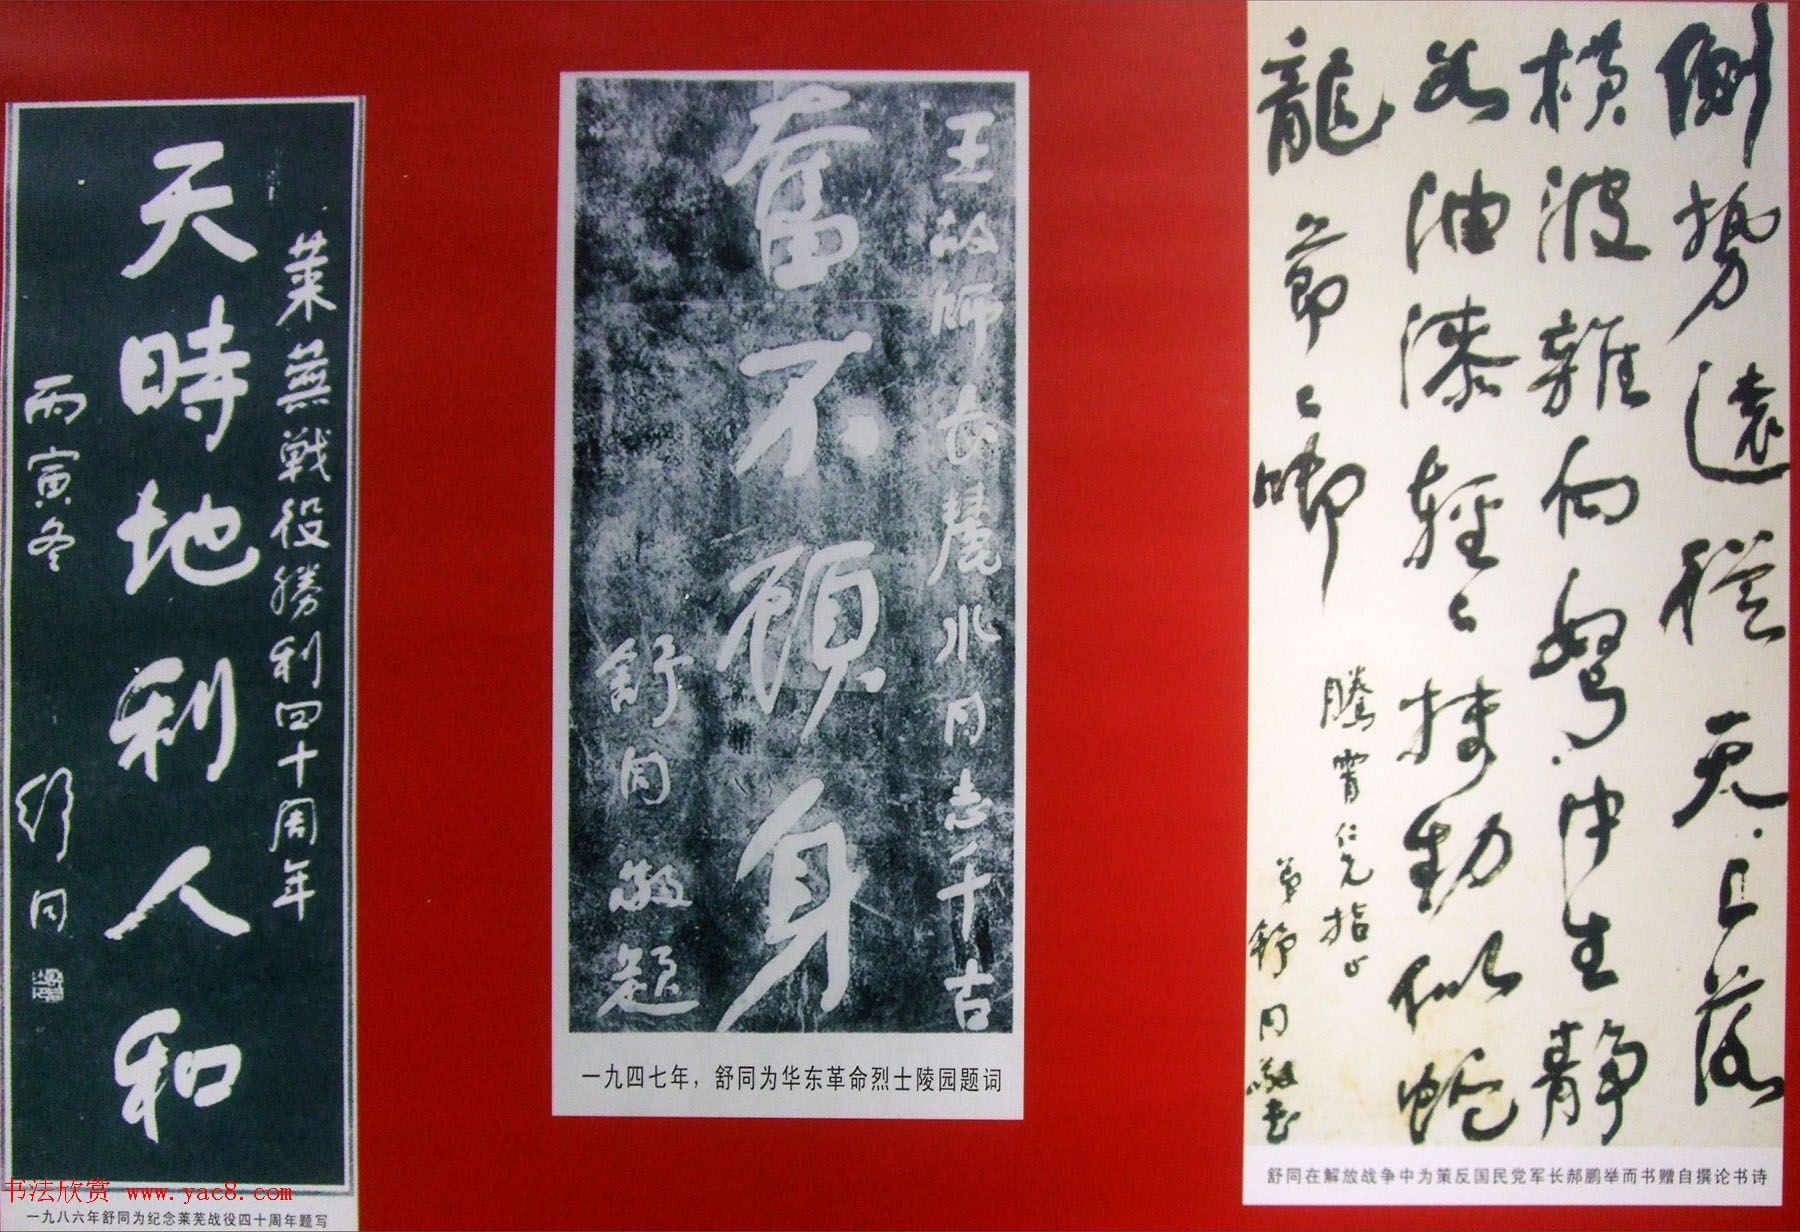 莱蕪戰役勝利四十周年
天時地利人和
丙寅冬 舒同
书法欣赏 www.yac8.com
一九八六年舒同为纪念莱芜战役四十周年题写
王故師长麓水同志千古
奮不顧身
舒同敬题
一九四七年，舒同为华东革命烈士陵园题词
側勢遠從天上落
橫波雜向弩中生静
若油漆輕々動似蛇
龍節々啣
騰霄仁兄指正
弟舒同敬書
舒同在解放战争中为策反国民党军长郝鹏举而书赠自撰论书诗